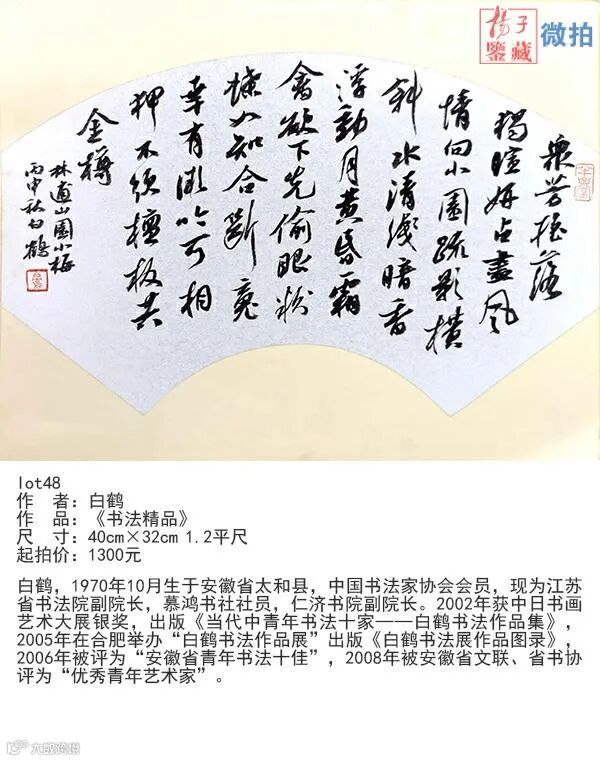 楊子
鑒藏
微拍
衆芳搖落
獨暄妍占盡風
情向小園疏影橫
斜水清淺暗香
浮動月黃昏霜
禽欲下先偷眼粉
蝶如知合斷魂
幸有微吟可相
狎不須檀板共
金樽
林逋山園小梅
丙申秋白鶴
lot48
作 者：白鹤
作 品：《书法精品》
尺 寸：40cm×32cm 1.2平尺
起拍价：1300元
白鹤，1970年10月生于安徽省太和县，中国书法家协会会员，现为江苏
省书法院副院长，慕鸿书社社员，仁济书院副院长。2002年获中日书画
艺术大展银奖，出版《当代中青年书法十家——白鹤书法作品集》，
2005年在合肥举办“白鹤书法作品展”出版《白鹤书法展作品图录》，
2006年被评为“安徽省青年书法十佳”，2008年被安徽省文联、省书协
评为“优秀青年艺术家”。